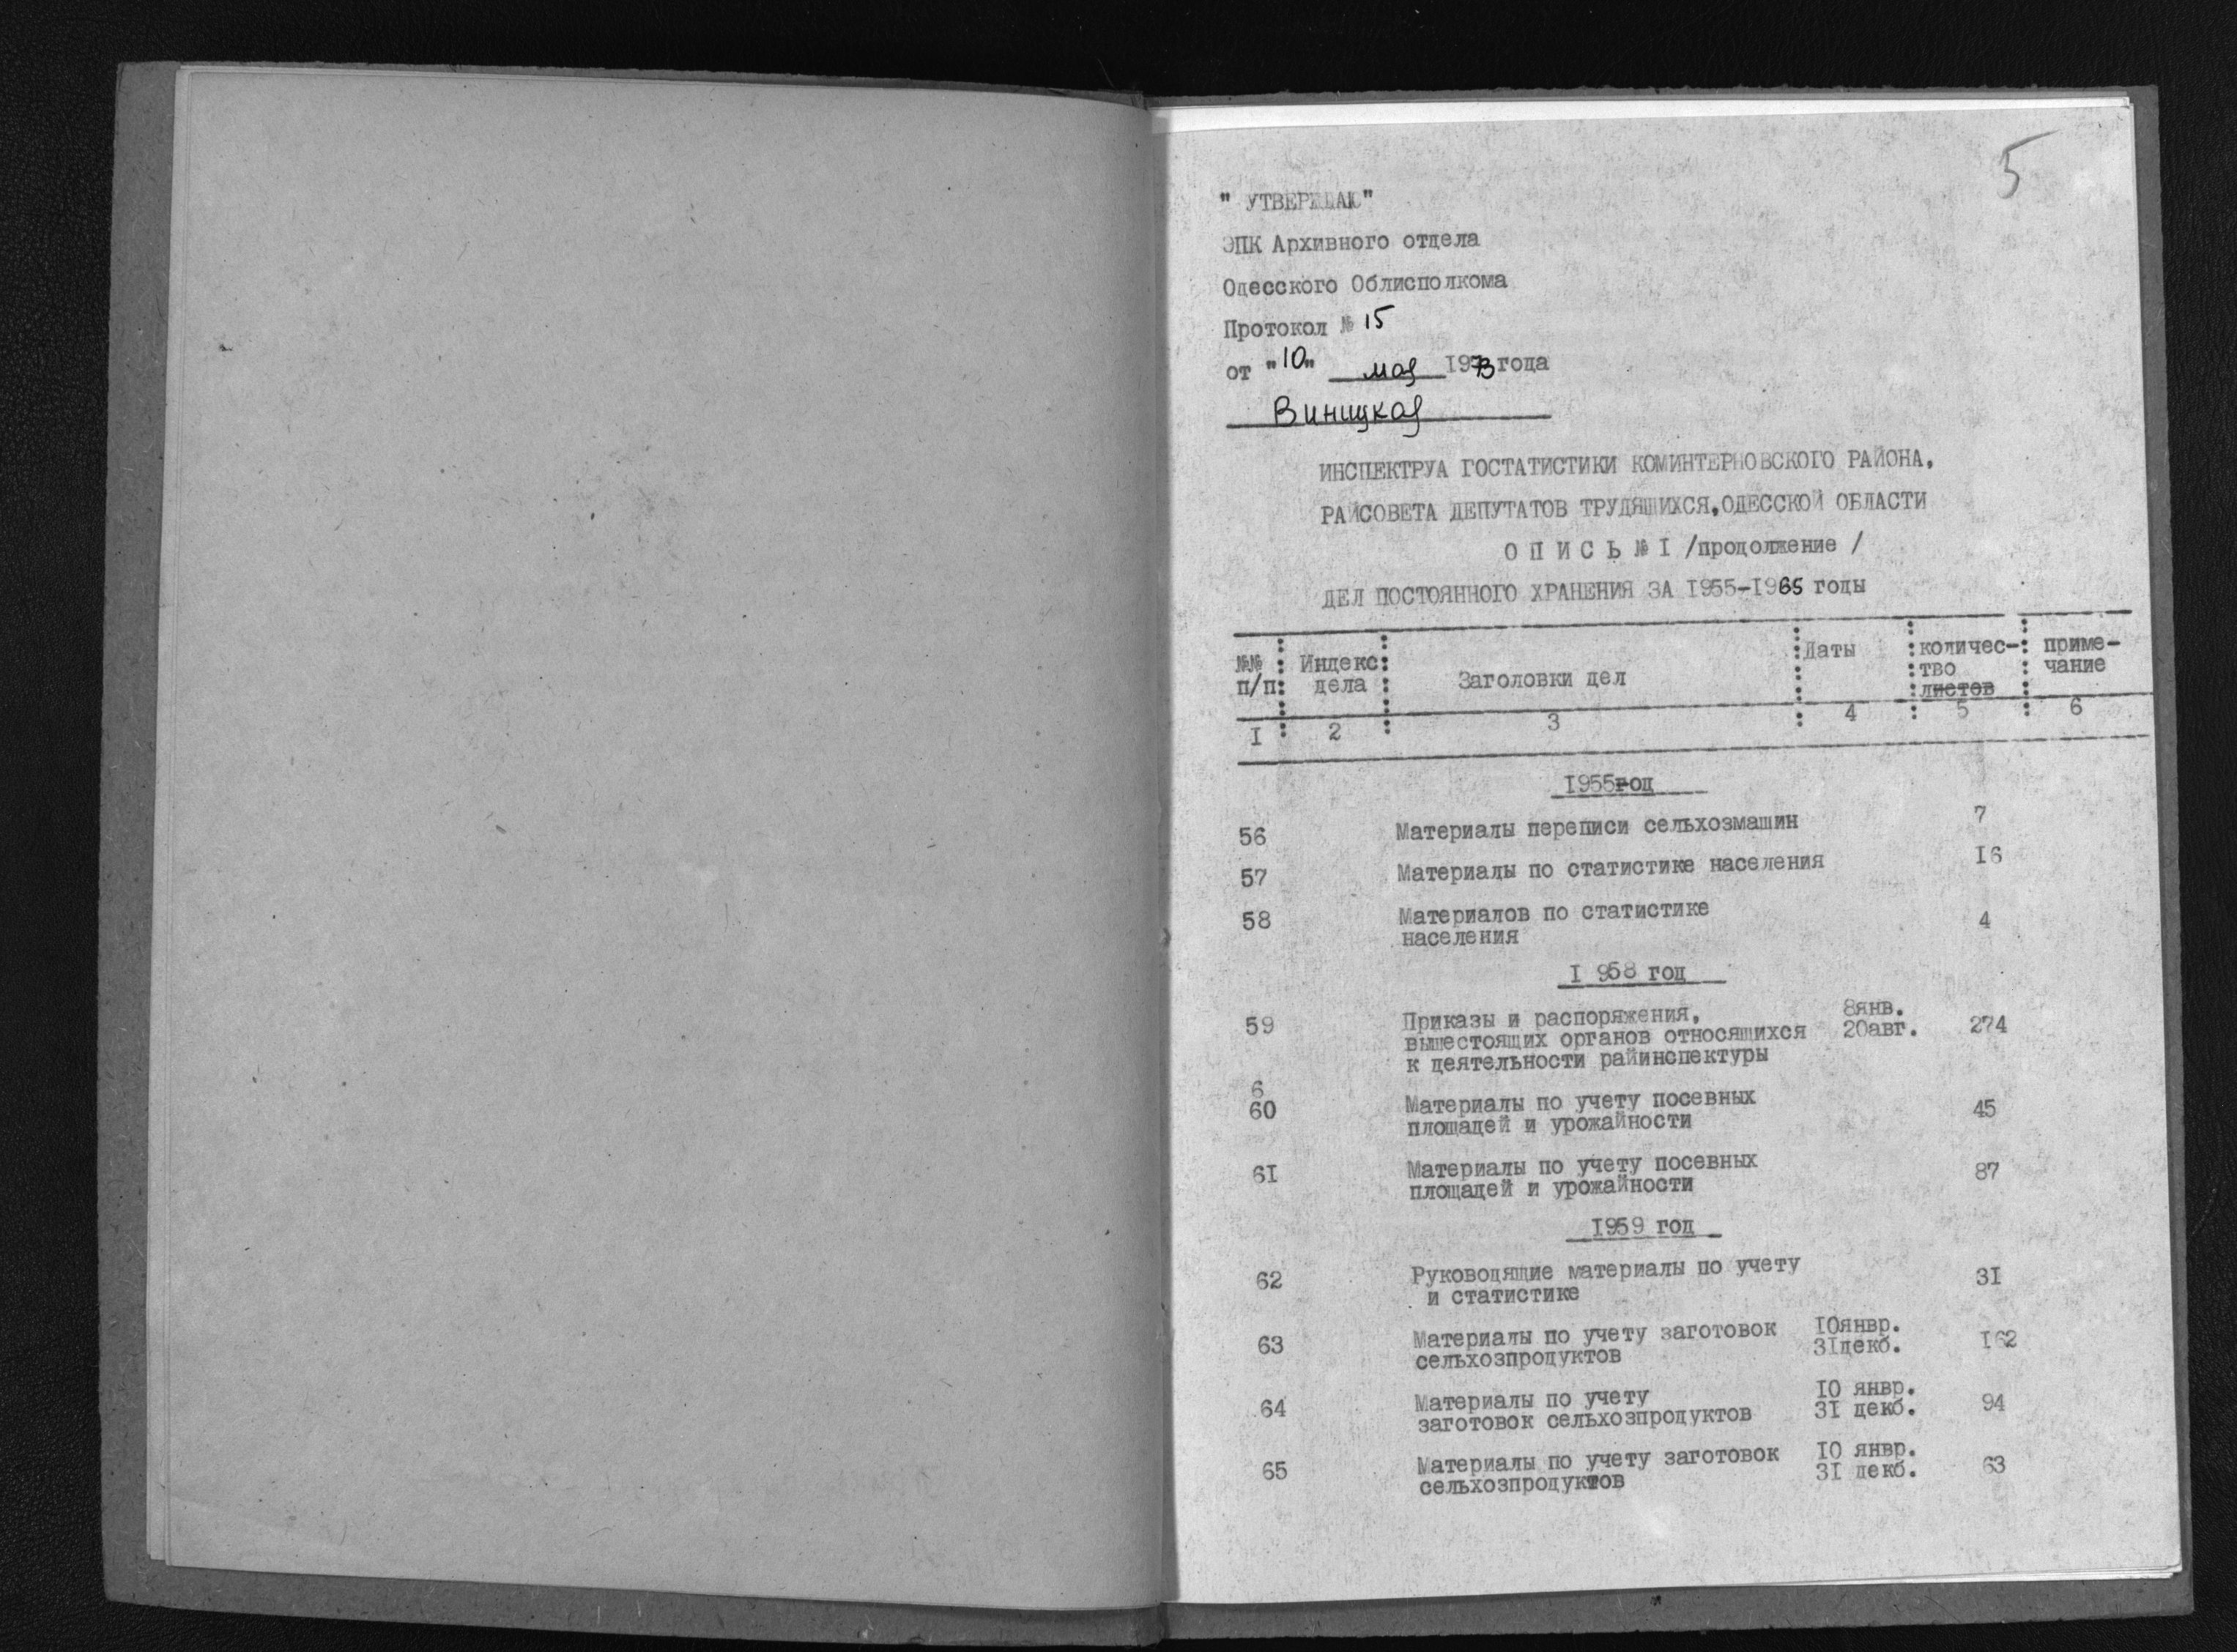 5
" УТВЕРЖДАЮ"
ЭПК Архивного отдела
Одесского Облисполкома
Протокол № 15
от "10" мая 1973 года
Виницкая
ИНСПЕКТРУА ГОСТАТИСТИКИ КОМИНТЕРНОВСКОГО РАЙОНА,
РАЙСОВЕТА ДЕПУТАТОВ ТРУДЯЩИХСЯ,ОДЕССКОЙ ОБЛАСТИ
О П И С Ь № I /продолжение /
ДЕЛ ПОСТОЯННОГО ХРАНЕНИЯ ЗА I955-I965 годы
№№ п/п Индекс дела Заголовки дел Даты количес-тво листов приме-чание
I 2 3 4 5 6
I955год
56 Материалы переписи сельхозмашин 7
57 Материалы по статистике населения I6
58 Материалов по статистике 4
населения
I 958 год
59 Приказы и распоряжения, 8янв.
вышестоящих органов относящихся 20авг. 274
к деятельности райинспектуры
6
60 Материалы по учету посевных 45
площадей и урожайности
6I Материалы по учету посевных 87
площадей и урожайности
I959 год
62 Руководящие материалы по учету 3I
и статистике
63 Материалы по учету заготовок I0янвр. I62
сельхозпродуктов 3Iдекб.
64 Материалы по учету I0 янвр. 94
заготовок сельхозпродуктов 3I декб.
65 Материалы по учету заготовок I0 янвр. 63
сельхозпродуктов 3I декб.